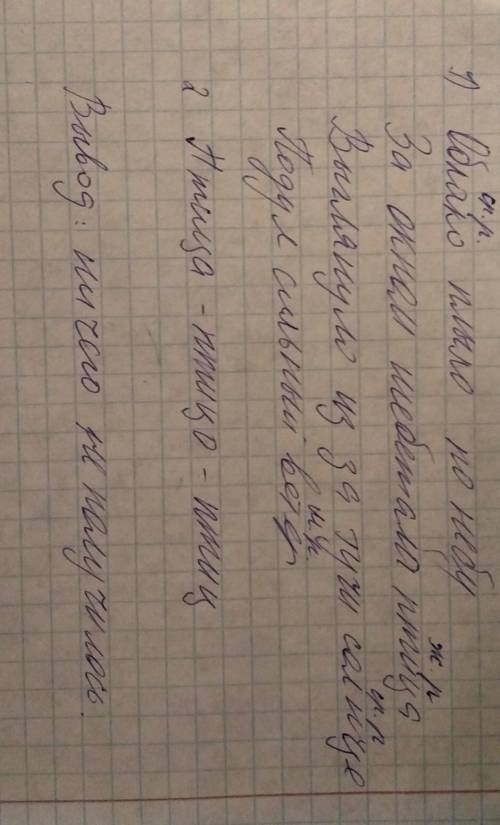 1) Облако ср.р. плыло по небу
За окном щебетала птица ж.р
Выглянуло из за тучи солнце ср.р
Подул сильный ветер м.р.
2 Птица - птицо - птиц
Вывод: ничего не получилось.